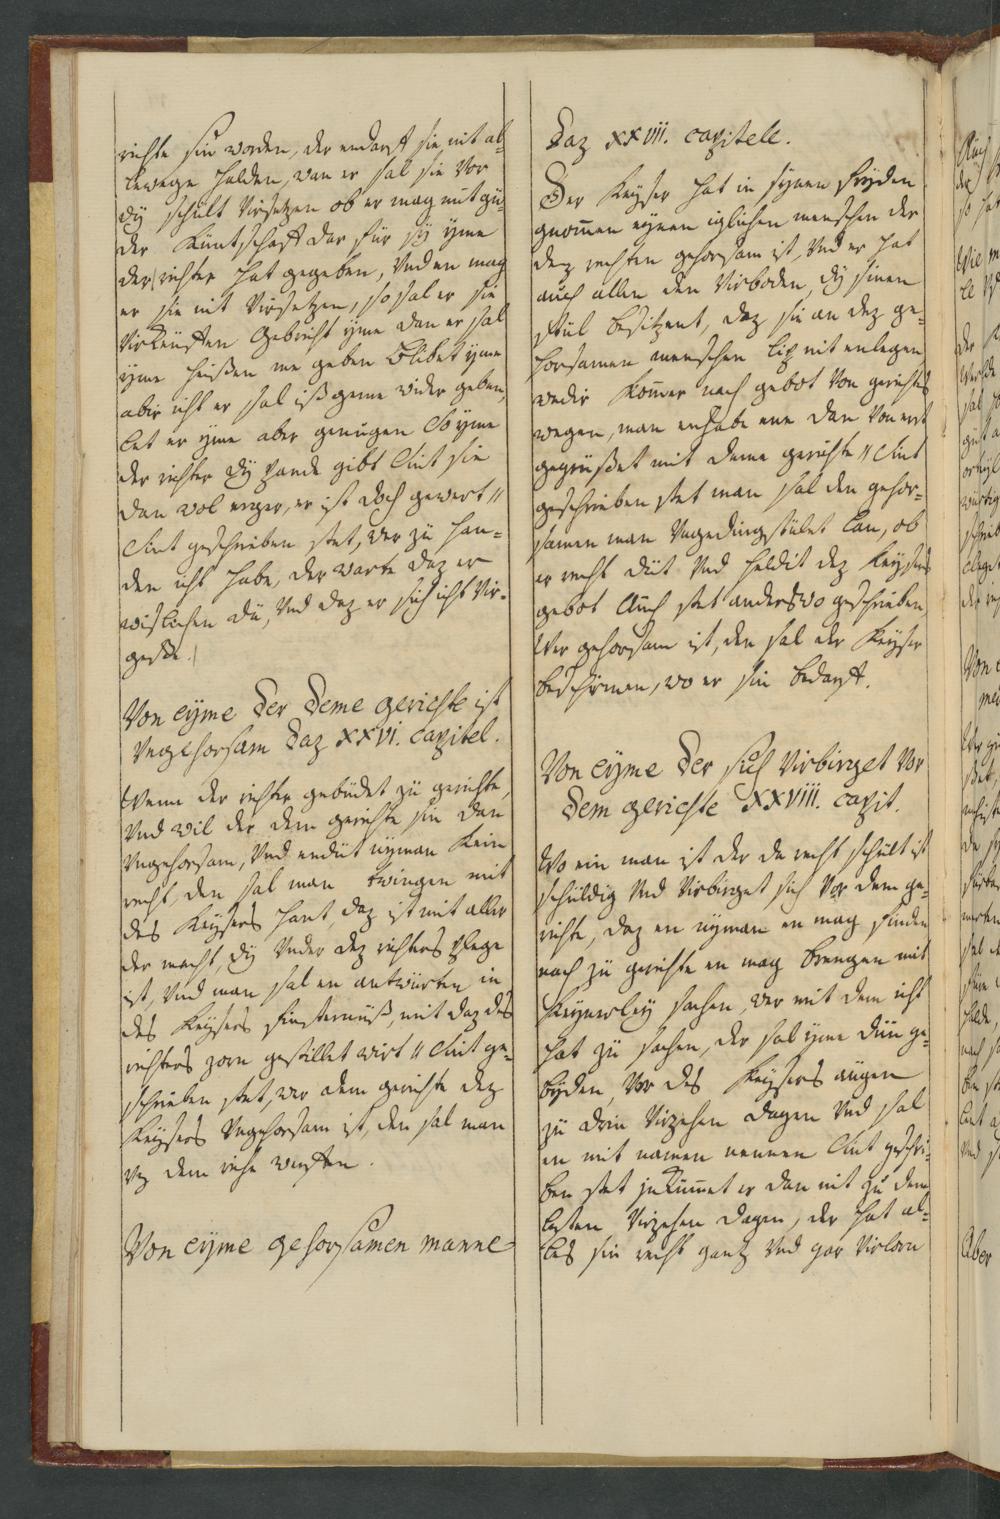 richte sin worden, der endarf sie nit al-
lewege halden, wan er sal sie vor
dÿ schult virsetzen ob er mag mit gu-
der kuntschaft dar für sÿ yme
der richter hat gegeben, vnd en mag
er sie nit virsetzen, so sal er sie
virkeuffen Gebricht yme dan er sal
yme heißen me geben Blibet yme
abir icht er sal iß gerne wider geben,
let er yme aber genugen So yme
der richter dÿ pande gibt Sint sie
dan wol erger, er ist doch gewert //
Sint geschrieben stet, wer zu han-
den icht habe, der warte daz er
wislichen du, vnd daz er sich icht vir-
geße.
Von eyme der deme gerichte ist
vngehorsam daz XXVI. capitel.
Wenn der richter gebudet zu gerichte,
vnd wil der dem gerichte sin dan
vngehorsam, vnd endut nyman kein
recht, den sal man twingen mit
des Keysers hant, daz ist mit aller
der macht, dÿ vnder dez richters plege
ist, vnd man sal en antwurten in
des Keysers finsternuß, mit daz des
richters zorn gestillet wirt // Sint ge-
schrieben stet, wer dem gerichte dez
Keysers vngehorsam ist, den sal man
vz dem riche werffen.
Von eyme gehorsamen manne
daz XXVII. capitele.
Der Keyser hat in synen fryden
gnom̅en eynen iglichen menschen der
dez rechten gehorsam ist, vnd er hat
auch allen den virboden, dÿ sinen
stul besitzent, daz sie an dez ge-
horsamen menschen lip nit enlegen
weder kom̅er nach gebot von gerichts
wegen, man enhabe ene dan von erst
gegrußet mit deme gerichte // Sint
geschrieben stet man sal den gehor-
samen man vngedingstulet lan, ob
er recht dut vnd heldit dez Keysers
gebot Auch stet anderswo geschrieben
Wer gehorsam ist, den sal der Keyser
beschirmen, wo er sin bedarf.
Von eyme der sich virbirget vor
dem gerichte XXVIII. capit.
Wo ein man ist der da recht schult ist
schuldig vnd virbirget sich vor dem ge-
richte, daz en nyman en mag finden
nach zu gerichte en mag brengen mit
keynerley sachen, wer mit dem icht
hat zu sachen, der sal yme dun ge-
byden, vor des Keysers augen
zu drin virzehen dagen vnd sal
en mit namen nennen Sint geschri-
ben stet in kum̅et er dan nit zu den
lesten virzehen dagen, der hat al-
les sin recht gantz vnd gar virlorn